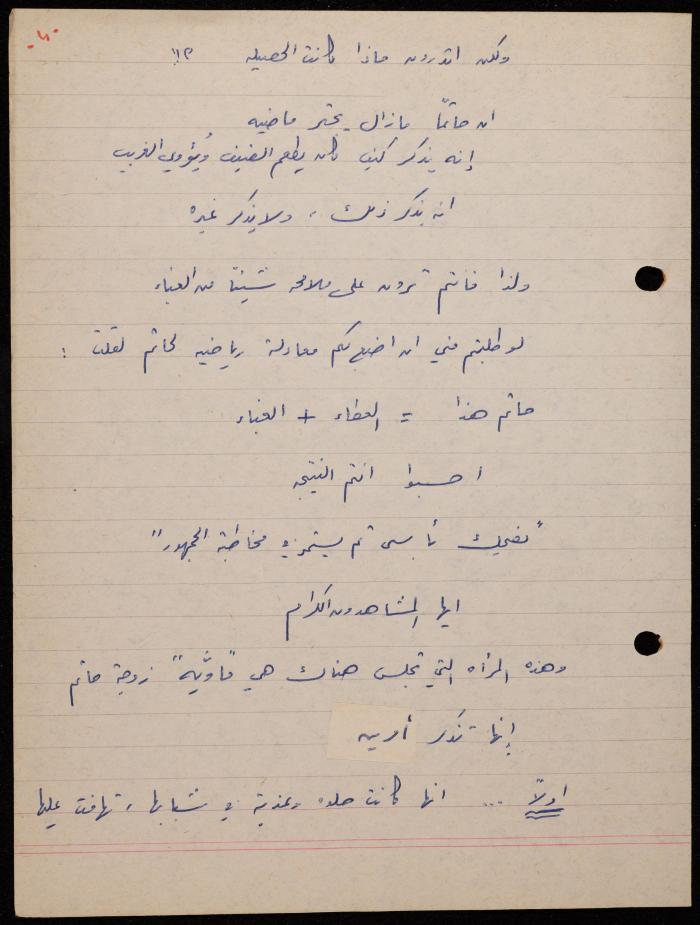 -٦-
ولكن اتدرون ماذا كانت الحصيله ؟!!
ان حاتماً مازال يجتر ماضيه
إنه يذكر كيف كان يطعم الضيف ويُؤوي الغريب
انه يذكر ذلك ، ولا يذكر غيره
ولذا فانتم ترون على ملامحه شيئاً من الغباء
لو طلبتم مني ان اضع لكم معادلة رياضيه لحاتم لقلت :
حاتم هذا = العطاء + الغباء
احسبوا انتم النتيجه
"يضحك بأسى ثم يستمر في مخاطبة الجمهور"
ايها المشاهدون الكرام
وهذه المرأه التي تجلس هناك هي "ماويَّه" زوجة حاتم
إنها تذكر أمرين
اولاً ... انها كانت حلوه وعذبة في شبابها ، تهافت عليها